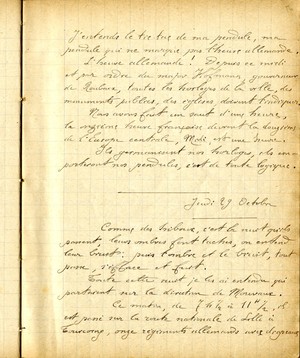 J'entends le tic tac de ma pendule, ma
pendule qui ne marque pas l'heure allemande.
L'heure allemande ! Depuis ce midi
et par ordre du major Hofmann, gouverneur
de Roubaix, toutes les horloges de la ville, des
monuments publics, des églises doivent l'indiquer.
Nous avons fait un saut d'une heure,
la onzième heure française devient la douzième
de l'Europe centrale, Midi est une heure.
Ils germanisent nos horloges, ils em-
porteront nos pendules, c'est de toute logique.
Jeudi 29 Octobre
Comme des hiboux, c'est la nuit qu'ils
passent. Leurs ombres font taches, on entend
leur bruit, puis l'ombre et le bruit, tout
passe, s'efface et fuit.
Toute cette nuit je les ai entendus qui
partaient sur la direction de Mouvaux.
Ce matin, de 7 h ½ à 11 h ½, il
est passé sur la route nationale de Lille à
Tourcoing, onze régiments allemands avec